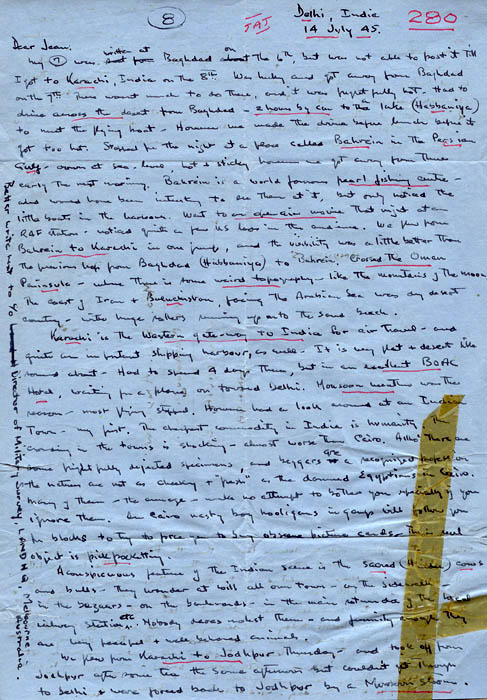 8
JAJ
Delhi, India
14 July 45.
280
Dear Jean.
My 7 was written at Baghdad on the 6th, but was not able to post it till
I got to Karachi, India on the 8th. Was lucky and got away from Baghdad
on the 7th. There wasn't much to do there, and it was frightfully hot. Had to
drive across the desert from Baghdad - 2 hours by car to the lake (Habbaniya)
to meet the flying boat - However we made the drive before lunch before it
got too hot. Stopped for the night at a place called Bahrein in the Persian
Gulf - down at sea level, hot & sticky however we got away from there
early the next morning. Bahrein is a world famous pearl fishing centre -
and would have been interesting to see them at it, but only noticed the
little boats in the harbour. Went to an open air movie that night at an
RAF station - noticed quite a few US boys in the audience. We flew from
Bahrein to Karachi in one jump, and the visibility was a little better than
the previous hop from Baghdad (Habbaniya) to Bahrein. Crossed the Oman
Peninsula - where there is some weird topography - like the mountains of the moon
The coast of Iran & Baluchistan, facing the Arabian Sea was dry desert
country - with huge rollers running up onto the sand beach.
Karachi is the Western gate-way to India for air travel - and
quite an important shipping harbour, as well - It is very flat & desert like
round about - Had to spend 4 days there, but in an excellent BOAC
Hotel, waiting for a plane on toward Delhi. Monsoon weather was the
reason - most flying stopped. However had a look around at an Indian
Town - my first. The cheapest commodity in India is humanity the
crowding in the towns is shocking - almost worse than Cairo. Altho' there are
some frightfully dejected specimens, and beggars are a recognised profession
the natives are not as cheeky & "push" as the damned Egyptians in Cairo.
Many of them - the average - make no attempt to bother you especially if you
ignore them. In Cairo nasty boy hooligans in gangs will follow you
for blocks to try to force you to buy obscene picture cards - their real
object is pickpocketting.
A conspicuous feature of the Indian scene is the sacred (Hindu) cows
and bulls - they wander at will all over town - on the sidewalks
in the bazaars - on the boulevards - in the main of the
railway stations etc. Nobody dares molest them - and funnily enough they
are very peaceful and well behaved animals.
We flew from Karachi to Jodhpur Thursday - and took off from
Jodhpur after some tea the same afternoon but couldn't get through
to Delhi & were forced back to Jodhpur by a Monsoon storm.
Better write next to c/o Director of Military Survey, LANDHQ Melbourne, Australia